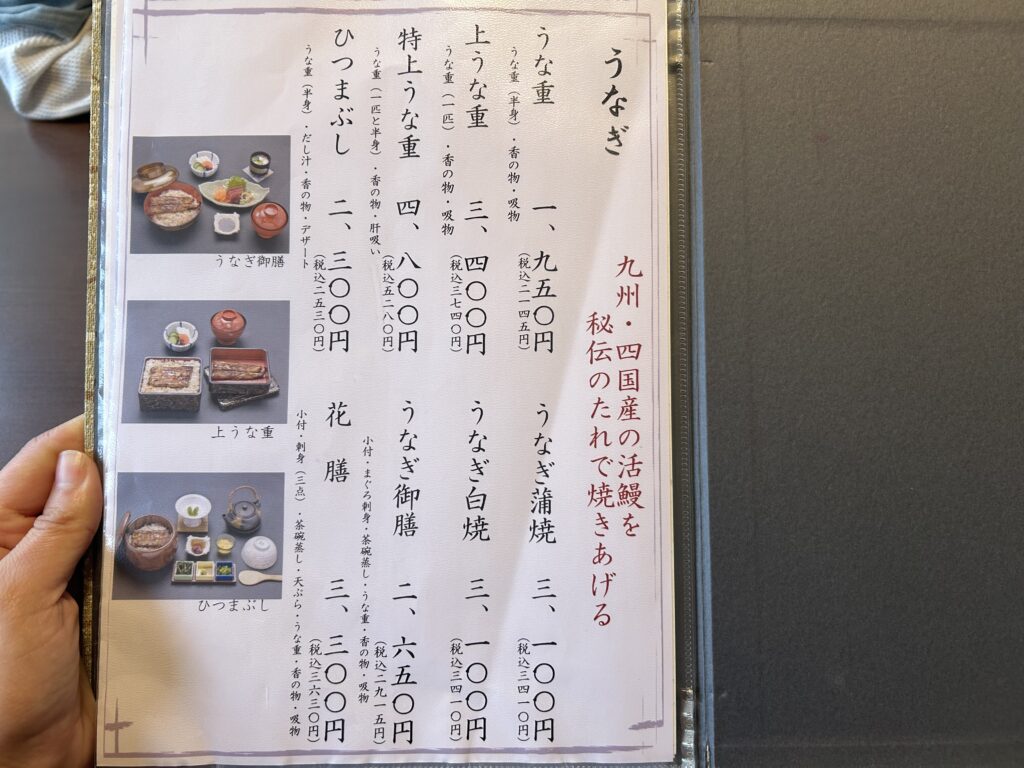 うなぎ
九州・四国産の活鰻を
秘伝のたれで焼きあげる
うな重 一、九五〇円
うな重（半身）・香の物・吸物
（税込二一四五円）
上うな重 三、四〇〇円
うな重（一匹）・香の物・吸物
（税込三七四〇円）
特上うな重 四、八〇〇円
うな重（一匹と半身）・香の物・肝吸い
（税込五二八〇円）
ひつまぶし 二、三〇〇円
うな重（半身）・だし汁・香の物・デザート
（税込二五三〇円）
うなぎ蒲焼 三、一〇〇円
（税込三四一〇円）
うなぎ白焼 三、一〇〇円
（税込三四一〇円）
うなぎ御膳 二、六五〇円
小付・まぐろ刺身・茶碗蒸し・うな重・香の物・吸物
（税込二九一五円）
花膳 三、三〇〇円
小付・刺身（三点）・茶碗蒸し・天ぷら・うな重・香の物・吸物
（税込三六三〇円）
うなぎ御膳
上うな重
ひつまぶし